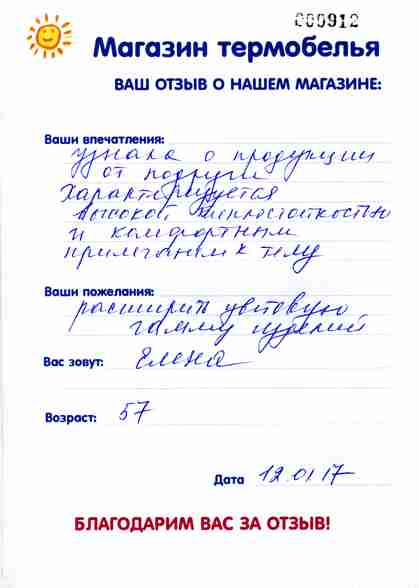 000912
Магазин термобелья
ВАШ ОТЗЫВ О НАШЕМ МАГАЗИНЕ:
Ваши впечатления:
узнала о продукции
от подруги
Характеризуется
высокой теплостойкостью
и комфортным
прилеганием к телу
Ваши пожелания:
расширить цветовую
гамму изделий
Вас зовут: Елена
Возраст: 57
Дата 12 01 17
БЛАГОДАРИМ ВАС ЗА ОТЗЫВ!